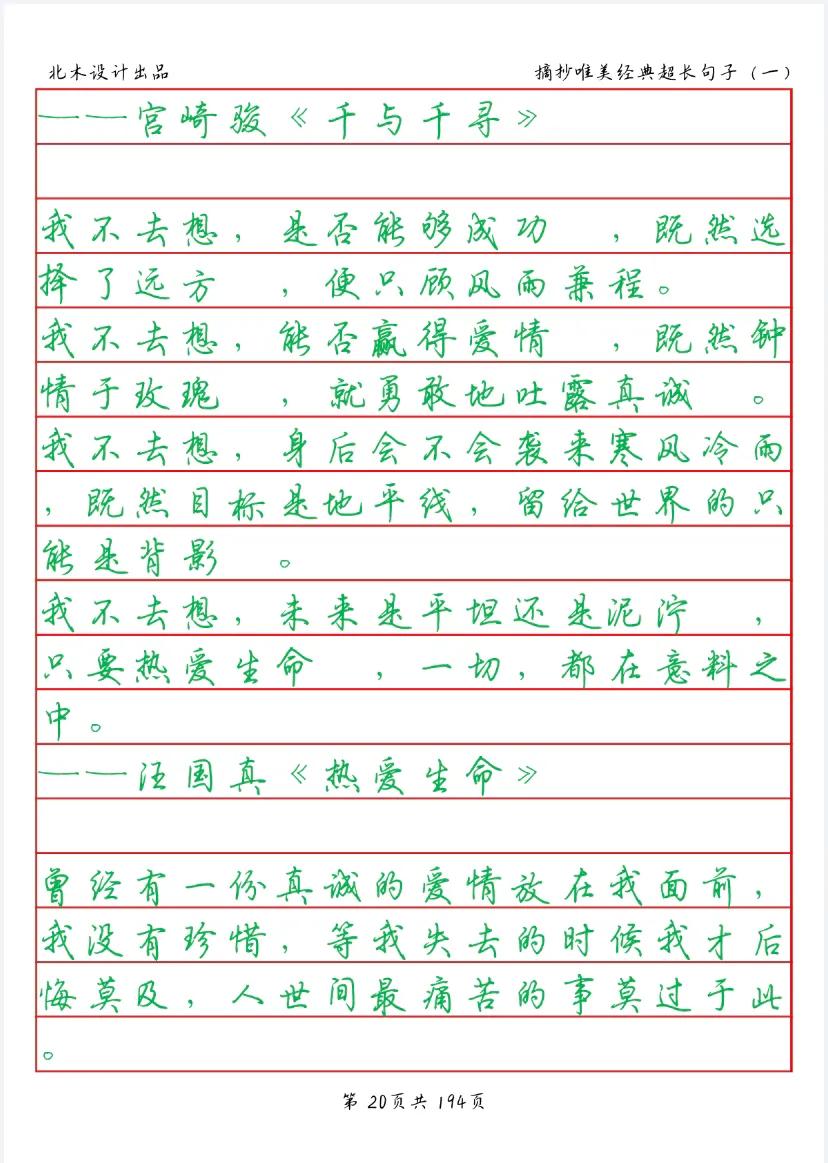 北木设计出品 摘抄唯美经典超长句子（一）
——宫崎骏《千与千寻》
我不去想，是否能够成功 ，既然选
择了远方 ，便只顾风雨兼程。
我不去想，能否赢得爱情 ，既然钟
情于玫瑰 ，就勇敢地吐露真诚 。
我不去想，身后会不会袭来寒风冷雨
，既然目标是地平线，留给世界的只
能是背影 。
我不去想，未来是平坦还是泥泞 ，
只要热爱生命 ，一切，都在意料之
中。
——汪国真《热爱生命》
曾经有一份真诚的爱情放在我面前，
我没有珍惜，等我失去的时候我才后
悔莫及，人世间最痛苦的事莫过于此
。
第 20页共 194页